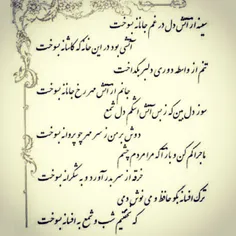 سینه از آتش دل در غم جانانه بسوخت
آتشی بود در این خانه که کاشانه بسوخت
تنم از واسطه دوری دلبر بگداخت
جانم از آتش مهر رخ جانانه بسوخت
سوز دل بین که ز بس آتش اشکم دل شمع
دوش بر من ز سر مهر چو پروانه بسوخت
ماجرا کم کن و بازآ که مرا مردم چشم
خرقه از سر به در آورد و به شکرانه بسوخت
ترک افسانه بگو حافظ و می نوش دمی
که نخفتیم شب و شمع به افسانه بسوخت